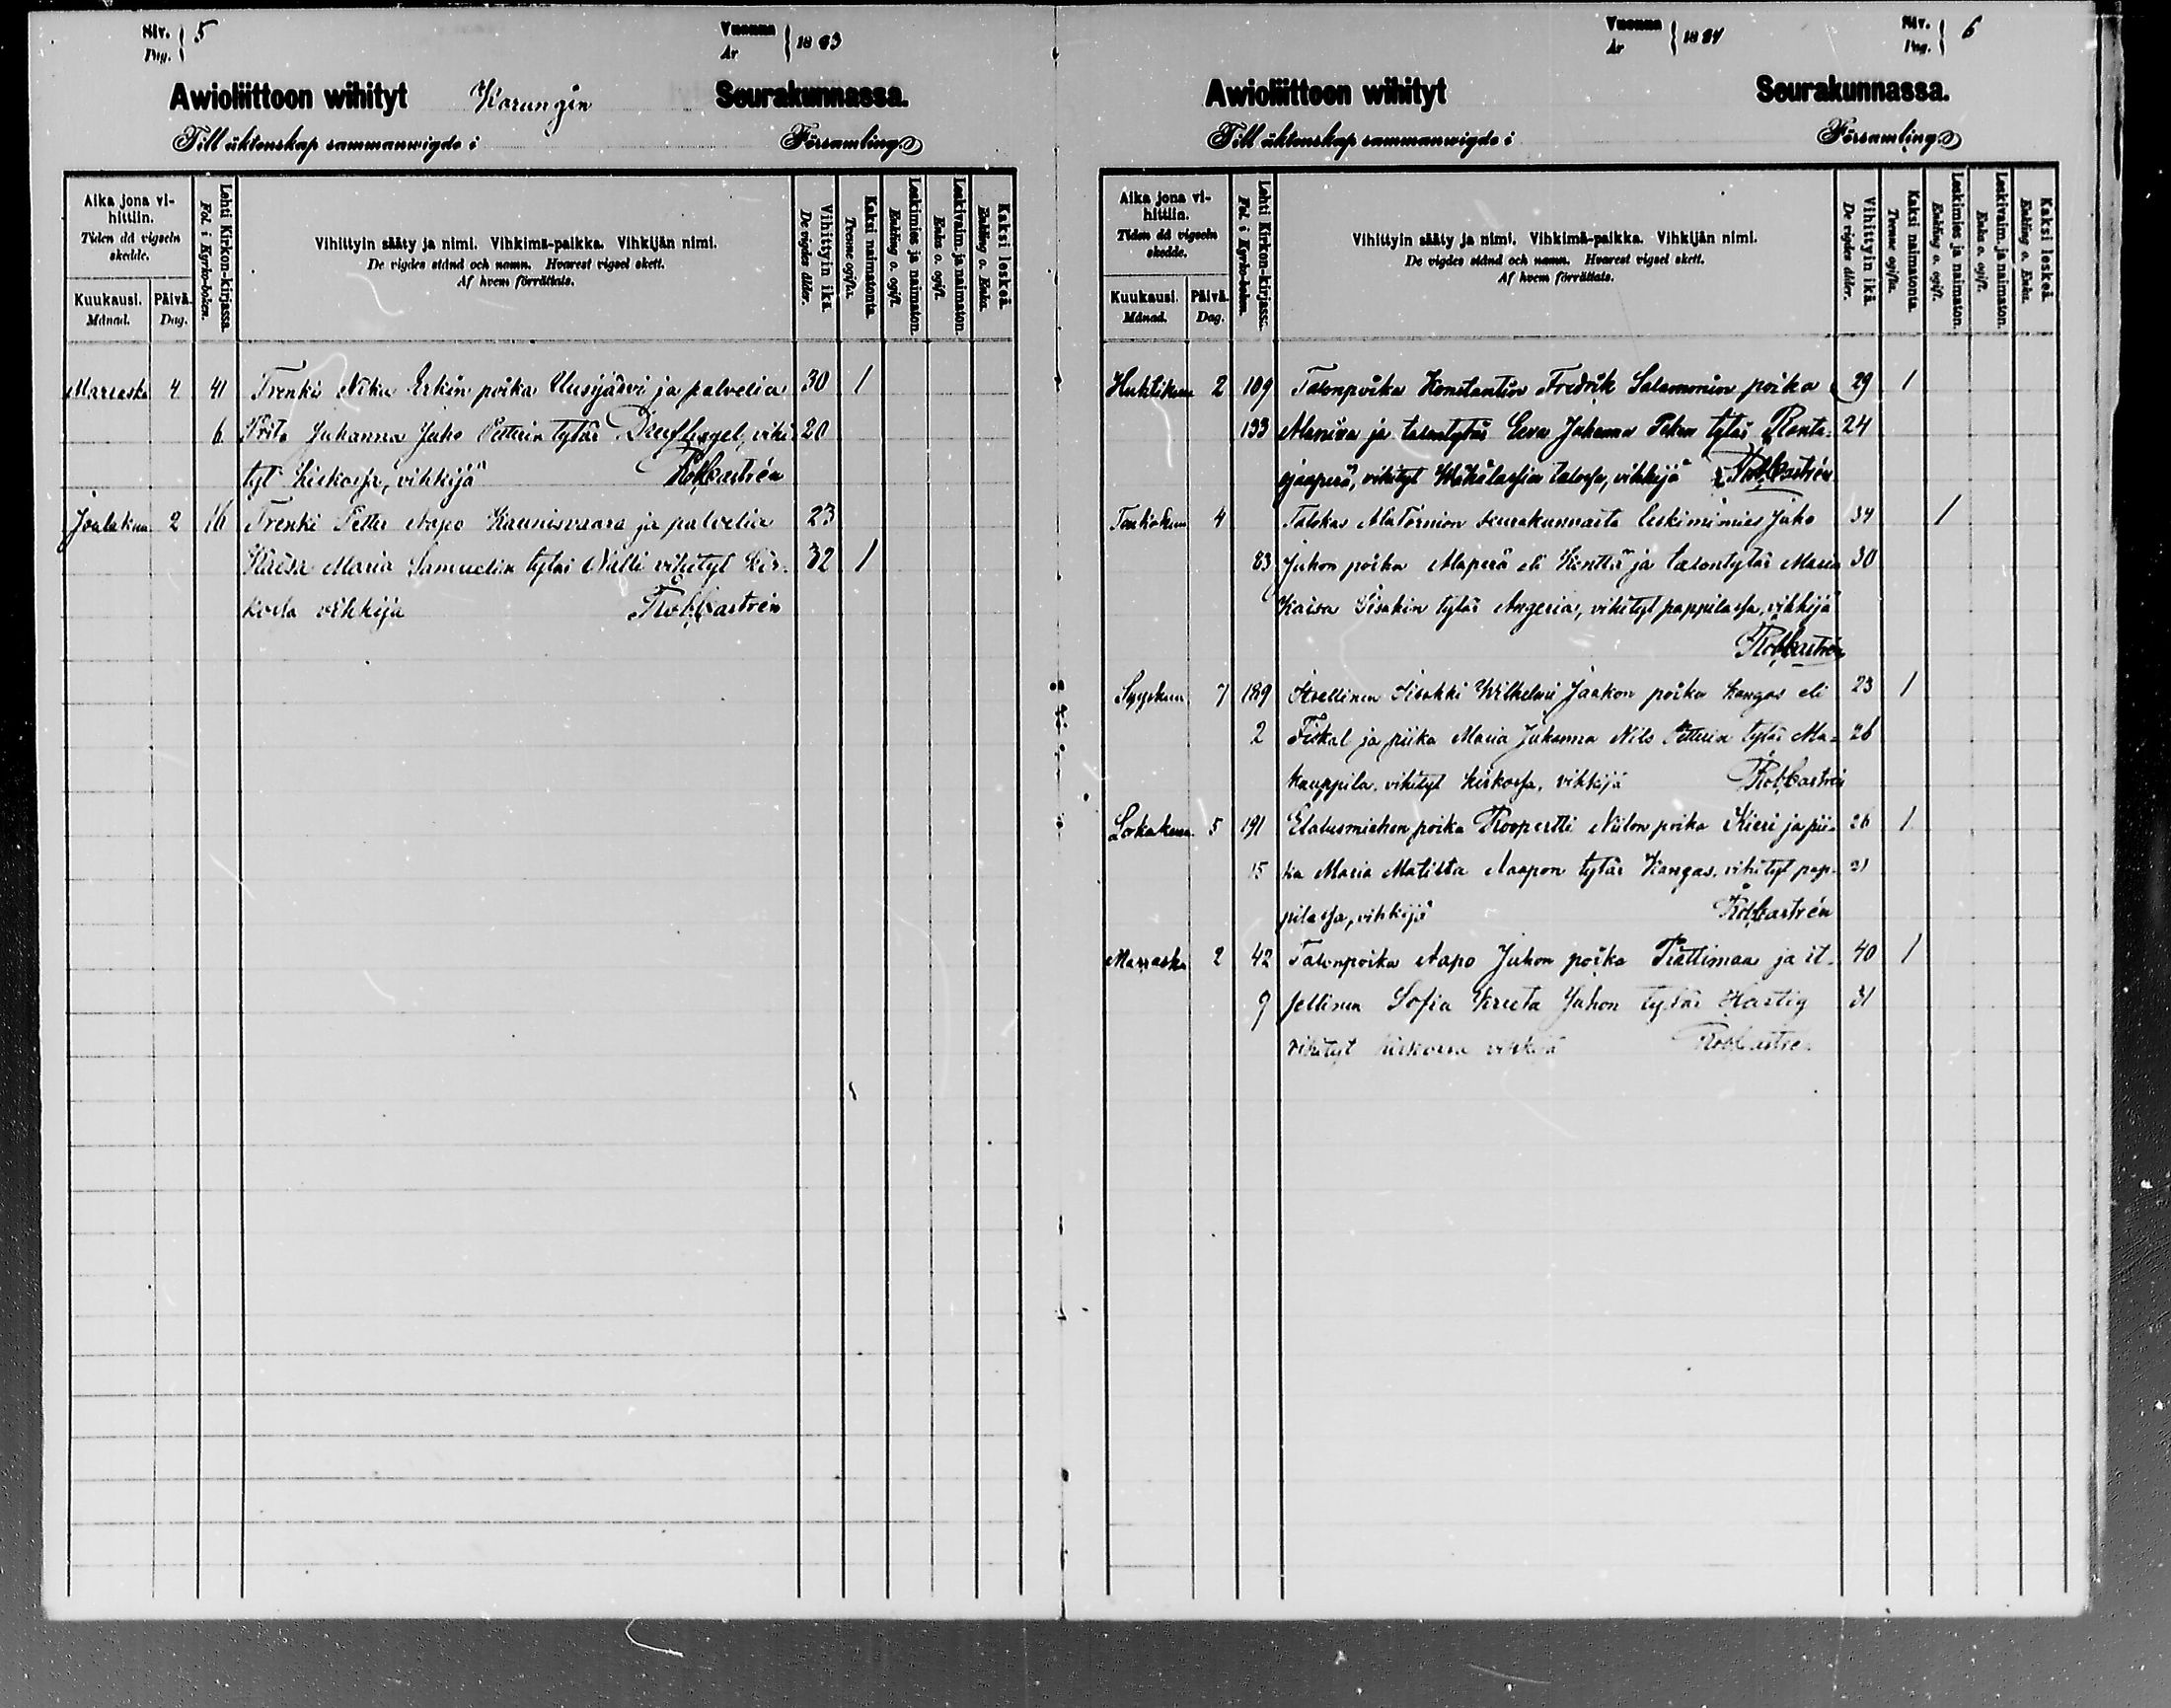 Siv. Pag. 5
Vuonna År 1883
Awioliittoon wihityt Karungin Seurakunnassa.
Till äktenskap sammanwigde i Församling.
Aika jona vihittiin.
Tiden då vigseln skedde.
Kuukausi. Månad.
Päivä. Dag.
Lehti Kirkon-kirjassa.
Fol. i Kyrko-boken.
Vihittyin sääty ja nimi. Vihkimä-paikka. Vihkijän nimi.
De vigdes stånd och namn. Hvarest vigsel skett.
Af hvem förrättats.
Vihittyin ikä.
De vigdes ålder.
Kaksi naimatonta.
Tvenne ogifta.
Leskimies ja naimaton.
Enkling o. ogift.
Leskivaim. ja naimaton.
Enka o. ogift.
Kaksi leskeä.
Enkling o. Enka.
Marrask. 4 41 Trenki Niku Erkin poika Uusijärvi ja palvelia 30 1
6 Prita Juhanna Juho Petterin tytär vihi 20
tyt kirkossa, vihkijä Rob. Castrén
Joulukuu 2 16 Trenki Petter Aapo Kaunisvaara ja palvelia 23
Kaisa Maria Samuelin tytär Nälli vihityt kir- 32 1
kossa vihkijä Rob. Castrén
Siv. Pag. 6
Vuonna År 1884
Awioliittoon wihityt Seurakunnassa.
Till äktenskap sammanwigde i Församling.
Aika jona vihittiin.
Tiden då vigseln skedde.
Kuukausi. Månad.
Päivä. Dag.
Lehti Kirkon-kirjassa.
Fol. i Kyrko-boken.
Vihittyin sääty ja nimi. Vihkimä-paikka. Vihkijän nimi.
De vigdes stånd och namn. Hvarest vigsel skett.
Af hvem förrättats.
Vihittyin ikä.
De vigdes ålder.
Kaksi naimatonta.
Tvenne ogifta.
Leskimies ja naimaton.
Enkling o. ogift.
Leskivaim. ja naimaton.
Enka o. ogift.
Kaksi leskeä.
Enkling o. Enka.
Huhtikuu 2 109 Talonpoika Konstantin Fredrik Salamonin poika 29 1
133 ja talontytär Eeva Johanna Pekan tytär Ranta- 24
ojanperä, vihityt talossa, vihkijä Rob. Castrén
Toukokuu 4 Talokas AlaTornion seurakunnasta leskimimies Juho 34 1
83 Juhon poika Alaperä eli Kenttä ja talontytär Maria 30
Kaisa Iisakin tytär Angeria, vihityt pappilassa, vihkijä
Rob. Castrén
Syyskuu 7 189 Itsellinen Iisakki Wilhelmi Jaakon poika Kangas eli 23 1
2 Fiskal ja piika Maria Juhanna Nils Petterin tytär Ala- 26
kauppila, vihityt kirkossa, vihkijä Rob. Castrén
Lokakuu 5 191 Elatusmiehen poika Roopertti Niilon poika Kieri ja pii- 26 1
15 ka Maria Matilta Aapon tytär Kangas, vihityt pap- 21
pilassa, vihkijä Rob. Castrén
Marrask. 2 42 Talonpoika Aapo Juhon poika Tiattimaa ja it- 40 1
9 sellinen Sofia Kreeta Juhon tytär Hartig 31
vihityt kirkossa vihkijä Rob. Castrén